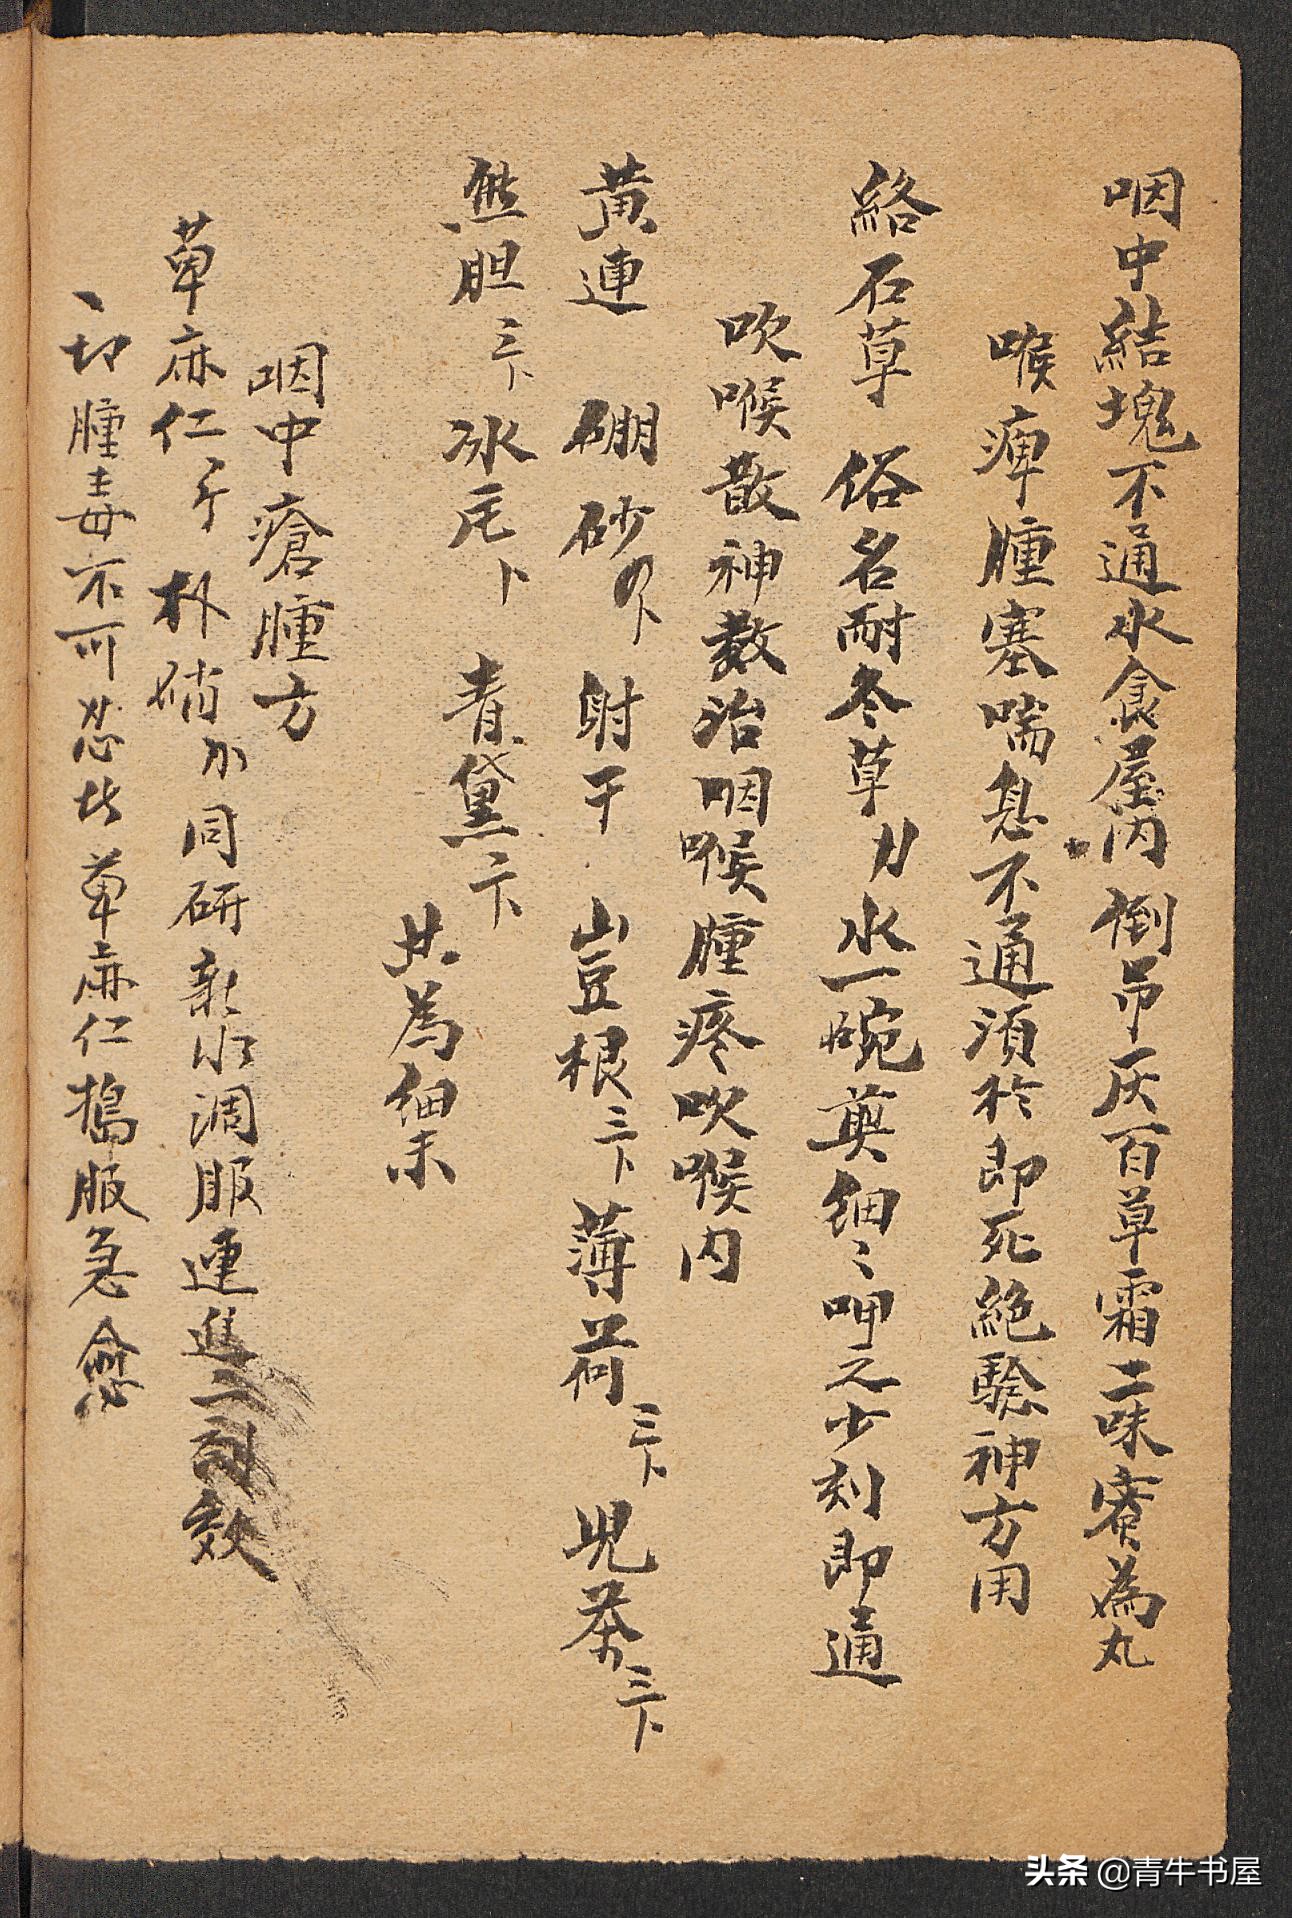 咽中結塊不通水食屋内倒吊灰百草霜二味蜜為丸
喉痺腫塞喘息不通須於即死絶驗神方用
絡石草 俗名耐冬草 水一碗煎細〻呷之少刻即通
吹喉散神教治咽喉腫疼吹喉内
黄連 硼砂 射干 山豆根三卜 薄荷三卜 児茶三卜
熊胆三卜 冰片卜 青黛二卜
共為細末
咽中瘡腫方
草麻仁 朴硝 同研新水調服連進二剂效
一切腫毒亦可忍此草麻仁搗服急愈
头条 @青牛书屋